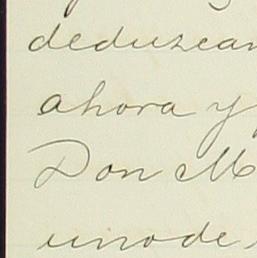 deduzcan
ahora y
Don M
uno de